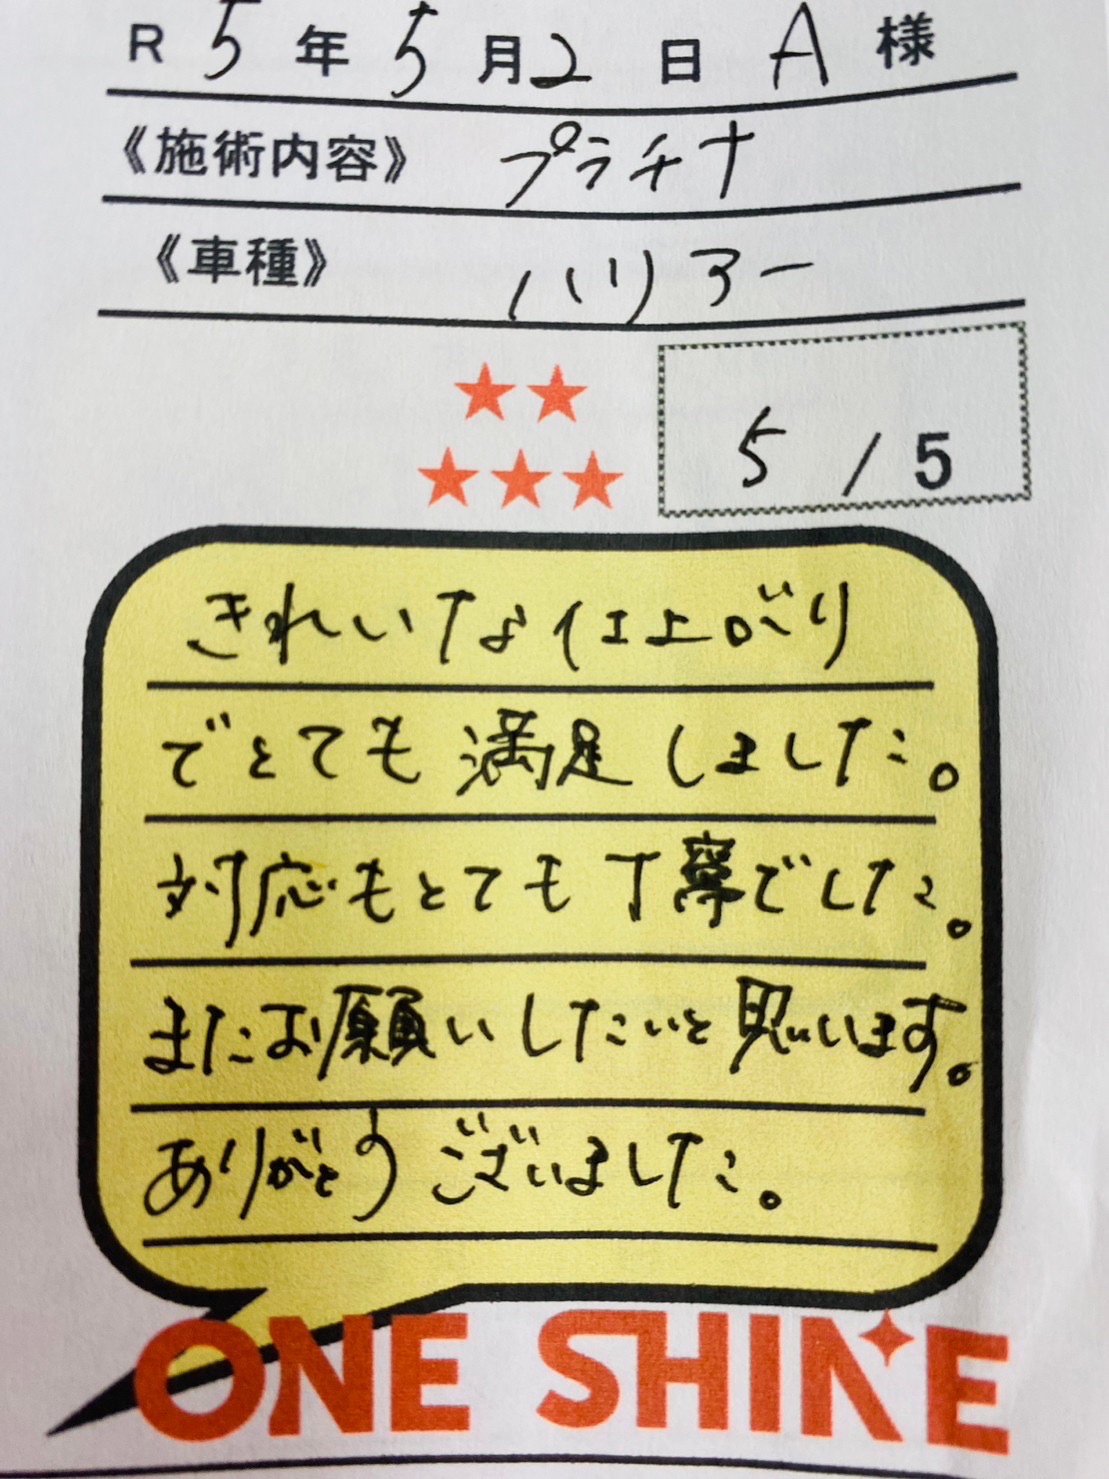 R 5 年 5 月 2 日 A 様
《施術内容》 プラチナ
《車種》 ハリアー
5 / 5
きれいな仕上がり
でとても満足しました。
対応もとても丁寧でした。
またお願いしたいと思います。
ありがとうございました。
ONE SHINE